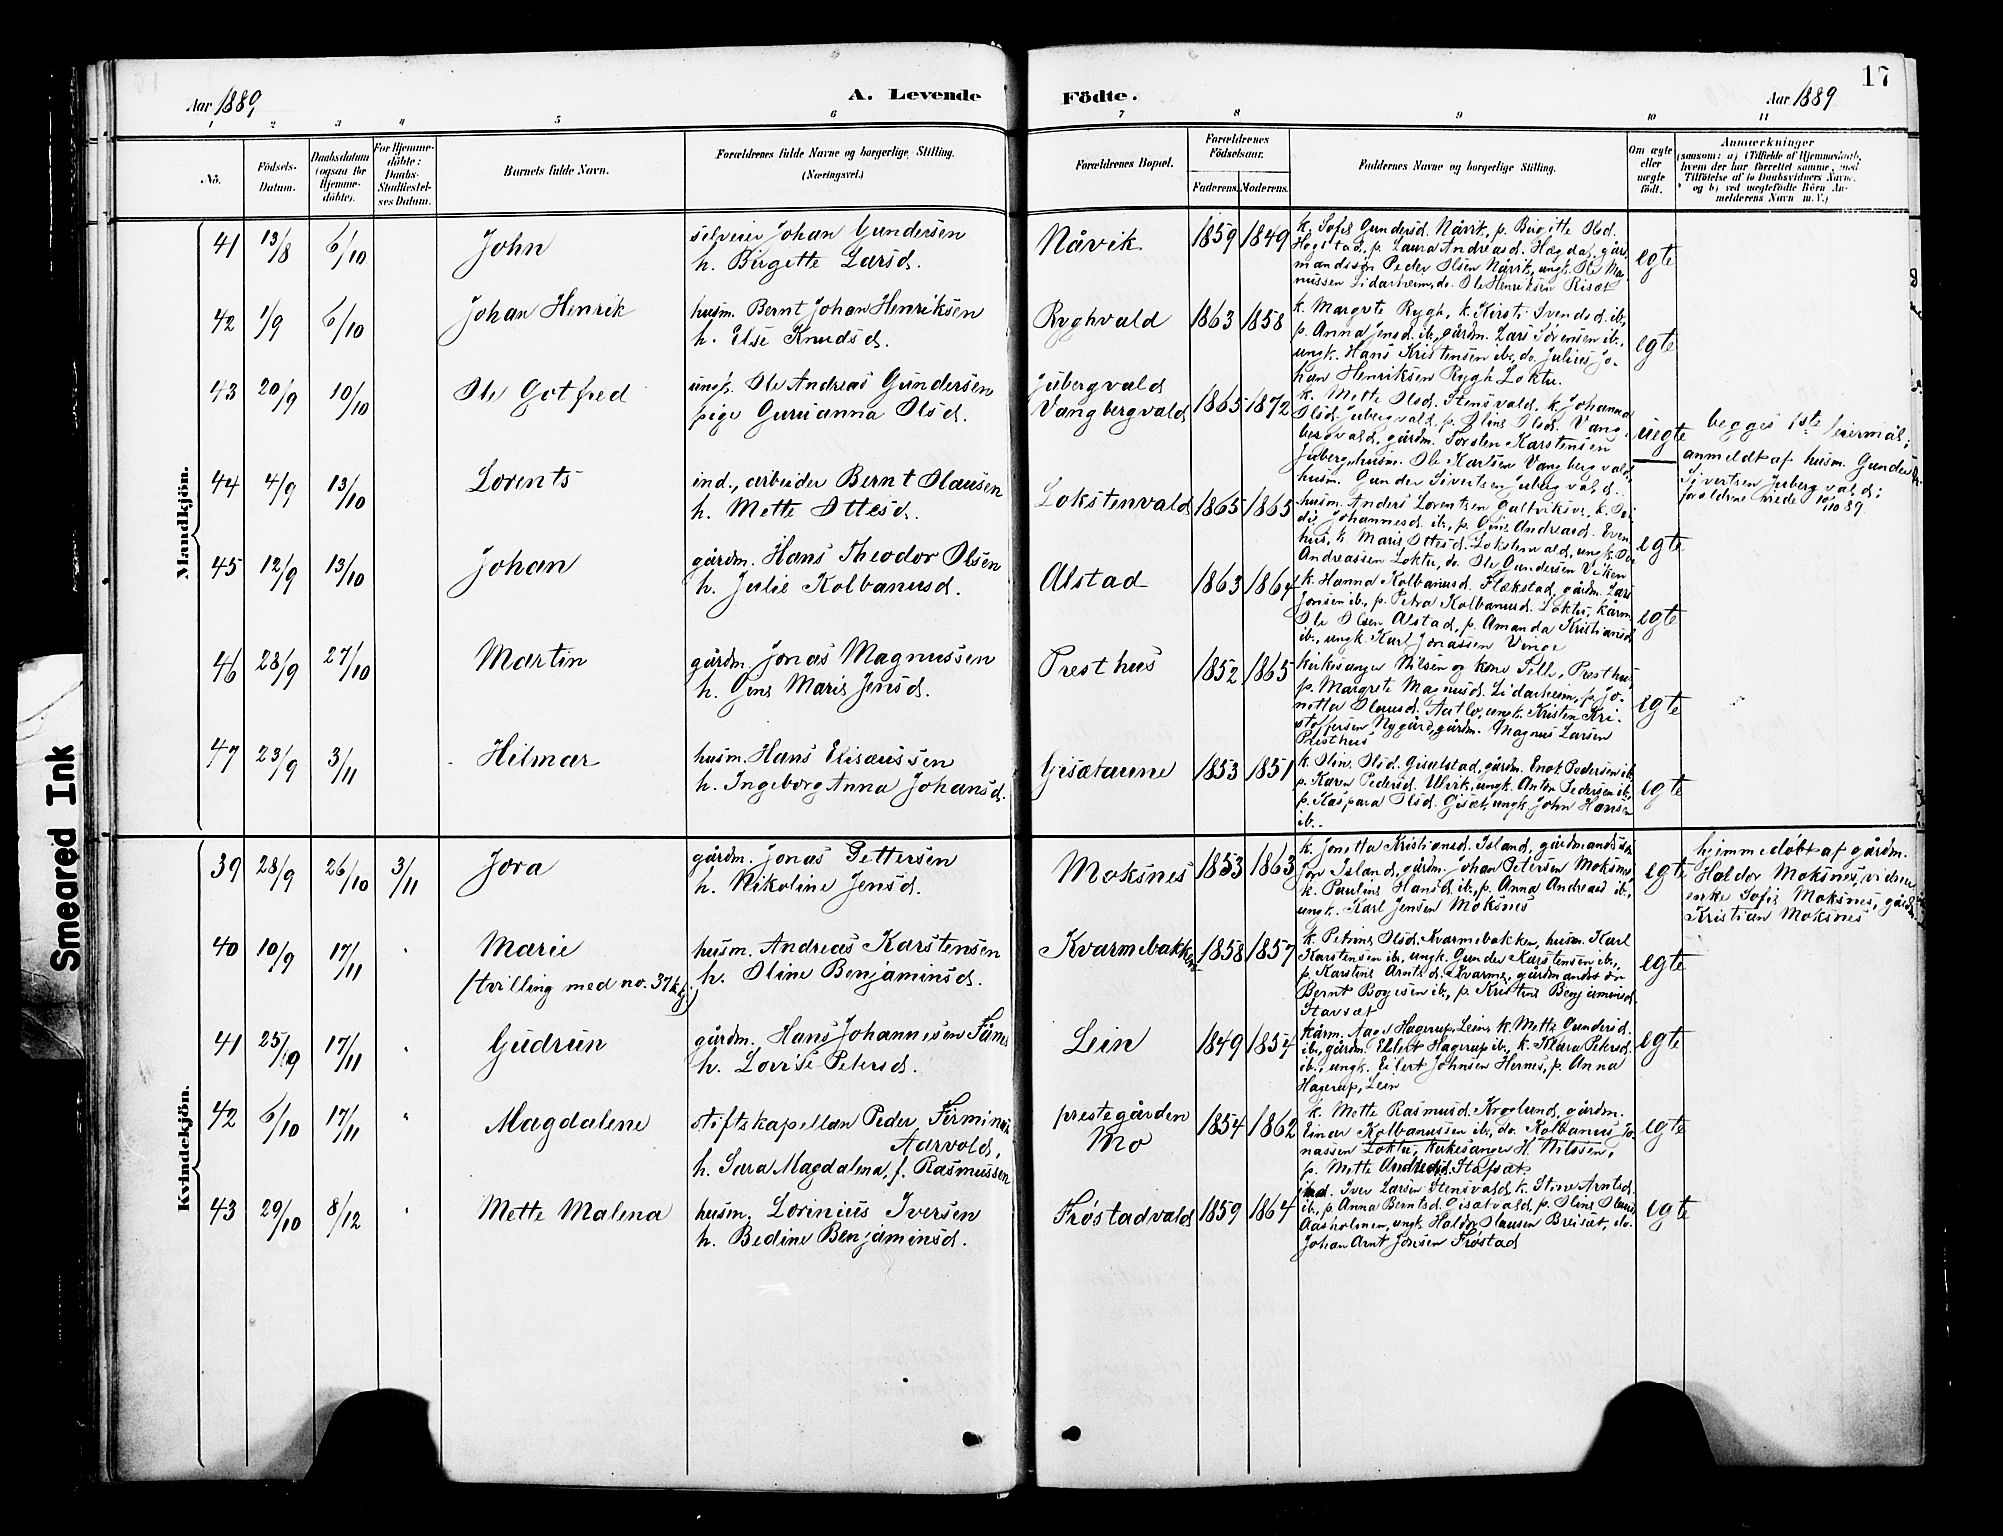 17
Aar 1889,
A. Levende
Födte.
Aar 1889
1 2 3 4 5 6 7 8 9 10 11
No.
Födsels-Datum.
Daabsdatum (ogsaa for Hjemme-döbte).
For Hjemme-döbte: Daabs-Stadfæstel-ses Datum.
Barnets fulde Navn.
Forældrenes fulde Navne og borgerlige Stilling. (Næringsvei.)
Forældrenes Bopæl.
Forældrenes Födselsaar.
Faderens. Moderens.
Faddernes Navne og borgerlige Stilling.
Om ægte eller uægte födt.
Anmærkninger
(saasom: a) i Tilfælde af Hjemmedaab,
hvem der har forrettet samme, med
Tilföielse af to Daabsvidners Navne.
og b) ved uægtefödte Börn An-
melderens Navn m. V.)
Mandkjön.
41 13/8 6/10 John
selveier Johan Gundersen
h. Birgette Larsd.
Nåvik 1859 1849
k. Sofie Gundersd. Nåvik, p. Birgitte Olsd.
Hogstad, p. Laura Andreasd. Hægda, gård-
mandssøn Peder Olsen Nåvik, ungk. Ole Mag-
nussen Lidarheim, do. Ole Henriksen Risæt
egte
42 1/9 6/10 Johan Henrik
husm. Bernt Johan Henriksen
h. Else Knudsd.
Ryghvald 1863 1858
k. Margrete Rygh, k. Kirsti Svendsd. ib.,
p. Anna Jensd. ib., gårdm. Lars Sørensen ib.,
ungk. Hans Kristensen ib., do. Julius Jo-
han Henriksen Rygh Loktu.
egte
43 20/9 10/10 Ole Gotfred
ungk. Ole Andreas Gundersen
pige Gurianna Olsd.
Jubergvald
Vangbergvald 1865 1872
k. Mette Olsd. Stensvald, k. Johanna
Olsd. Jubergvald, p. Oline Olsd. Vang-
bergvald, gårdm. Torsten Karstensen
Juberg, husm. Ole Karlsen Vangbergvald,
husm. Gunder Sivertsen Jubergvald.
uegte
begges 1ste leiermål;
anmeldt af husm. Gunder
Sivertsen Jubergvald;
forældrene viede 10/10 89
44 4/9 13/10 Lorents
ind., arbeider Bernt Olausen
h. Mette Ottesd.
Lokstenvald 1865 1865
husm. Anders Lorentsen Galtviksve, k.
Johannesd. ib., p. Gine Andreasd. Even-
hus, k. Marie Ottesd. Lokstenvald, ungk.
Andreassen Loktu, do. Ole Gundersen Viken
egte
45 12/9 13/10 Johan
gårdm. Hans Theodor Olsen
h. Julie Kolbanusd.
Alstad 1863 1864
k. Hanna Kolbanusd. Flækstad, gårdm. Lars
Jonsen ib., p. Petra Kolbanusd. Loktu, kårm.
Ole Olsen Alstad, p. Amanda Kristiansd.
ib., ungk. Karl Jonassen Vinge
egte
46 28/9 27/10 Martin
gårdm. Jonas Magnussen
h. Gine Marie Jensd.
Presthus 1852 1865
kirkesanger Nilsen og kone Pille, Presthus,
p. Margrete Magnusd. Lidarheim, p. Jo-
netta Olausd. Aatlo, ungk. Kristen Kri-
stoffersen Nygård, gårdm. Magnus Larsen
Presthus
egte
47 23/9 3/11 Hilmar
husm. Hans Elisæussen
h. Ingeborg Anna Johansd.
Gisætaune 1853 1851
k. Oline Olsd. Gisulstad, gårdm. Enok Pedersen ib.
p. Karen Pedersd. Ulvik, ungk. Anton Pedersen ib.,
p. Kaspara Olsd. Gisæt, ungk. John Hansen
ib..
egte
Kvindekjön.
39 28/9 26/10 3/11 Jora
gårdm. Jonas Pettersen
h. Nikoline Jensd.
Moksnes 1853 1863
k. Jonetta Kristiansd. Island, gårdmandssøn
Jon Island, gårdm. Johan Petersen Moksnes,
k. Pauline Hansd. ib., p. Anna Andreasd. ib.,
ungk. Karl Jensen Moksnes
egte
hjemmedøbt af gårdm.
Haldor Moksnes, vidner
enke Sofie Moksnes, gårdm.
Kristian Moksnes
40 10/9 17/11 Marie
(tvilling med no. 37 kk.)
husm. Andreas Karstensen
h. Oline Benjaminsd.
Kvarmebakken 1858 1857
k. Petrine Olsd. Kvarmebakken, husm. Karl
Karstensen ib., ungk. Gunder Karstensen ib.,
p. Karstine Arntsd. Kvarme, gårdmandssøn
Bernt Boyesen ib., p. Kristine Benjaminsd.
Stavsæt
egte
41 25/9 17/11 Gudrun
gårdm. Hans Johannesen Fånes
h. Lovise Petersd.
Lein 1849 1854
kårm. Aage Hagerup, Lein, k. Mette Gundersd.
ib., gårdm. Eilert Hagerup ib., k. Klara Petersd.
ib., ungk. Eilert Johnsen Hernes, p. Anna
Hagerup, Lein
egte
42 6/10 17/11 Magdalene
stiftskapellan Peder Firminus
Aarvold,
h. Sara Magdalena, f. Rasmussen
prestegården
Mo 1854 1862
k. Mette Rasmusd. Kroglund, gårdm.
Einar Kolbanussen ib., do. Kolbanus Jo-
nassen Loktu, kirkesanger H. Nilssen,
p. Mette Andreasd. Stafsæt
egte
43 29/10 8/12 Mette Malena
husm. Lorinius Iversen
h. Bedine Benjaminsd.
Frøstadvald 1859 1864
ind. Iver Larsen Stensvald, k. Stine Arntsd.
ib., p. Anna Berntsd. Gisætvald, p. Oline Olausd.
Aasholmen, ungk. Haldor Olausen Breisæt, do.
Johan Arnt Jonsen Frøstad
egte
Smeared Ink